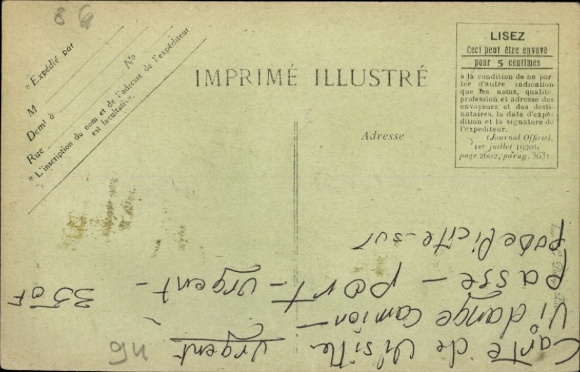 8
* Expédié par
M
N°
Demt à
Rue
* L'inscription du nom et de l'adresse de l'expéditeur
est facultative.
IMPRIMÉ ILLUSTRÉ
Adresse
LISEZ
Ceci peut être envoyé
pour 5 centimes
à la condition de ne por
ter d'autre indication
que les noms, qualité,
profession et adresse des
envoyeurs et des desti-
nataires, la date d'expé-
dition et la signature de
l'expéditeur.
(Journal Officiel,
1er juillet 1920,
page 2602, parag. 363).
Carte de visitte urgent
Vidange camion -
passe - port - urgent -
sur
35 0F